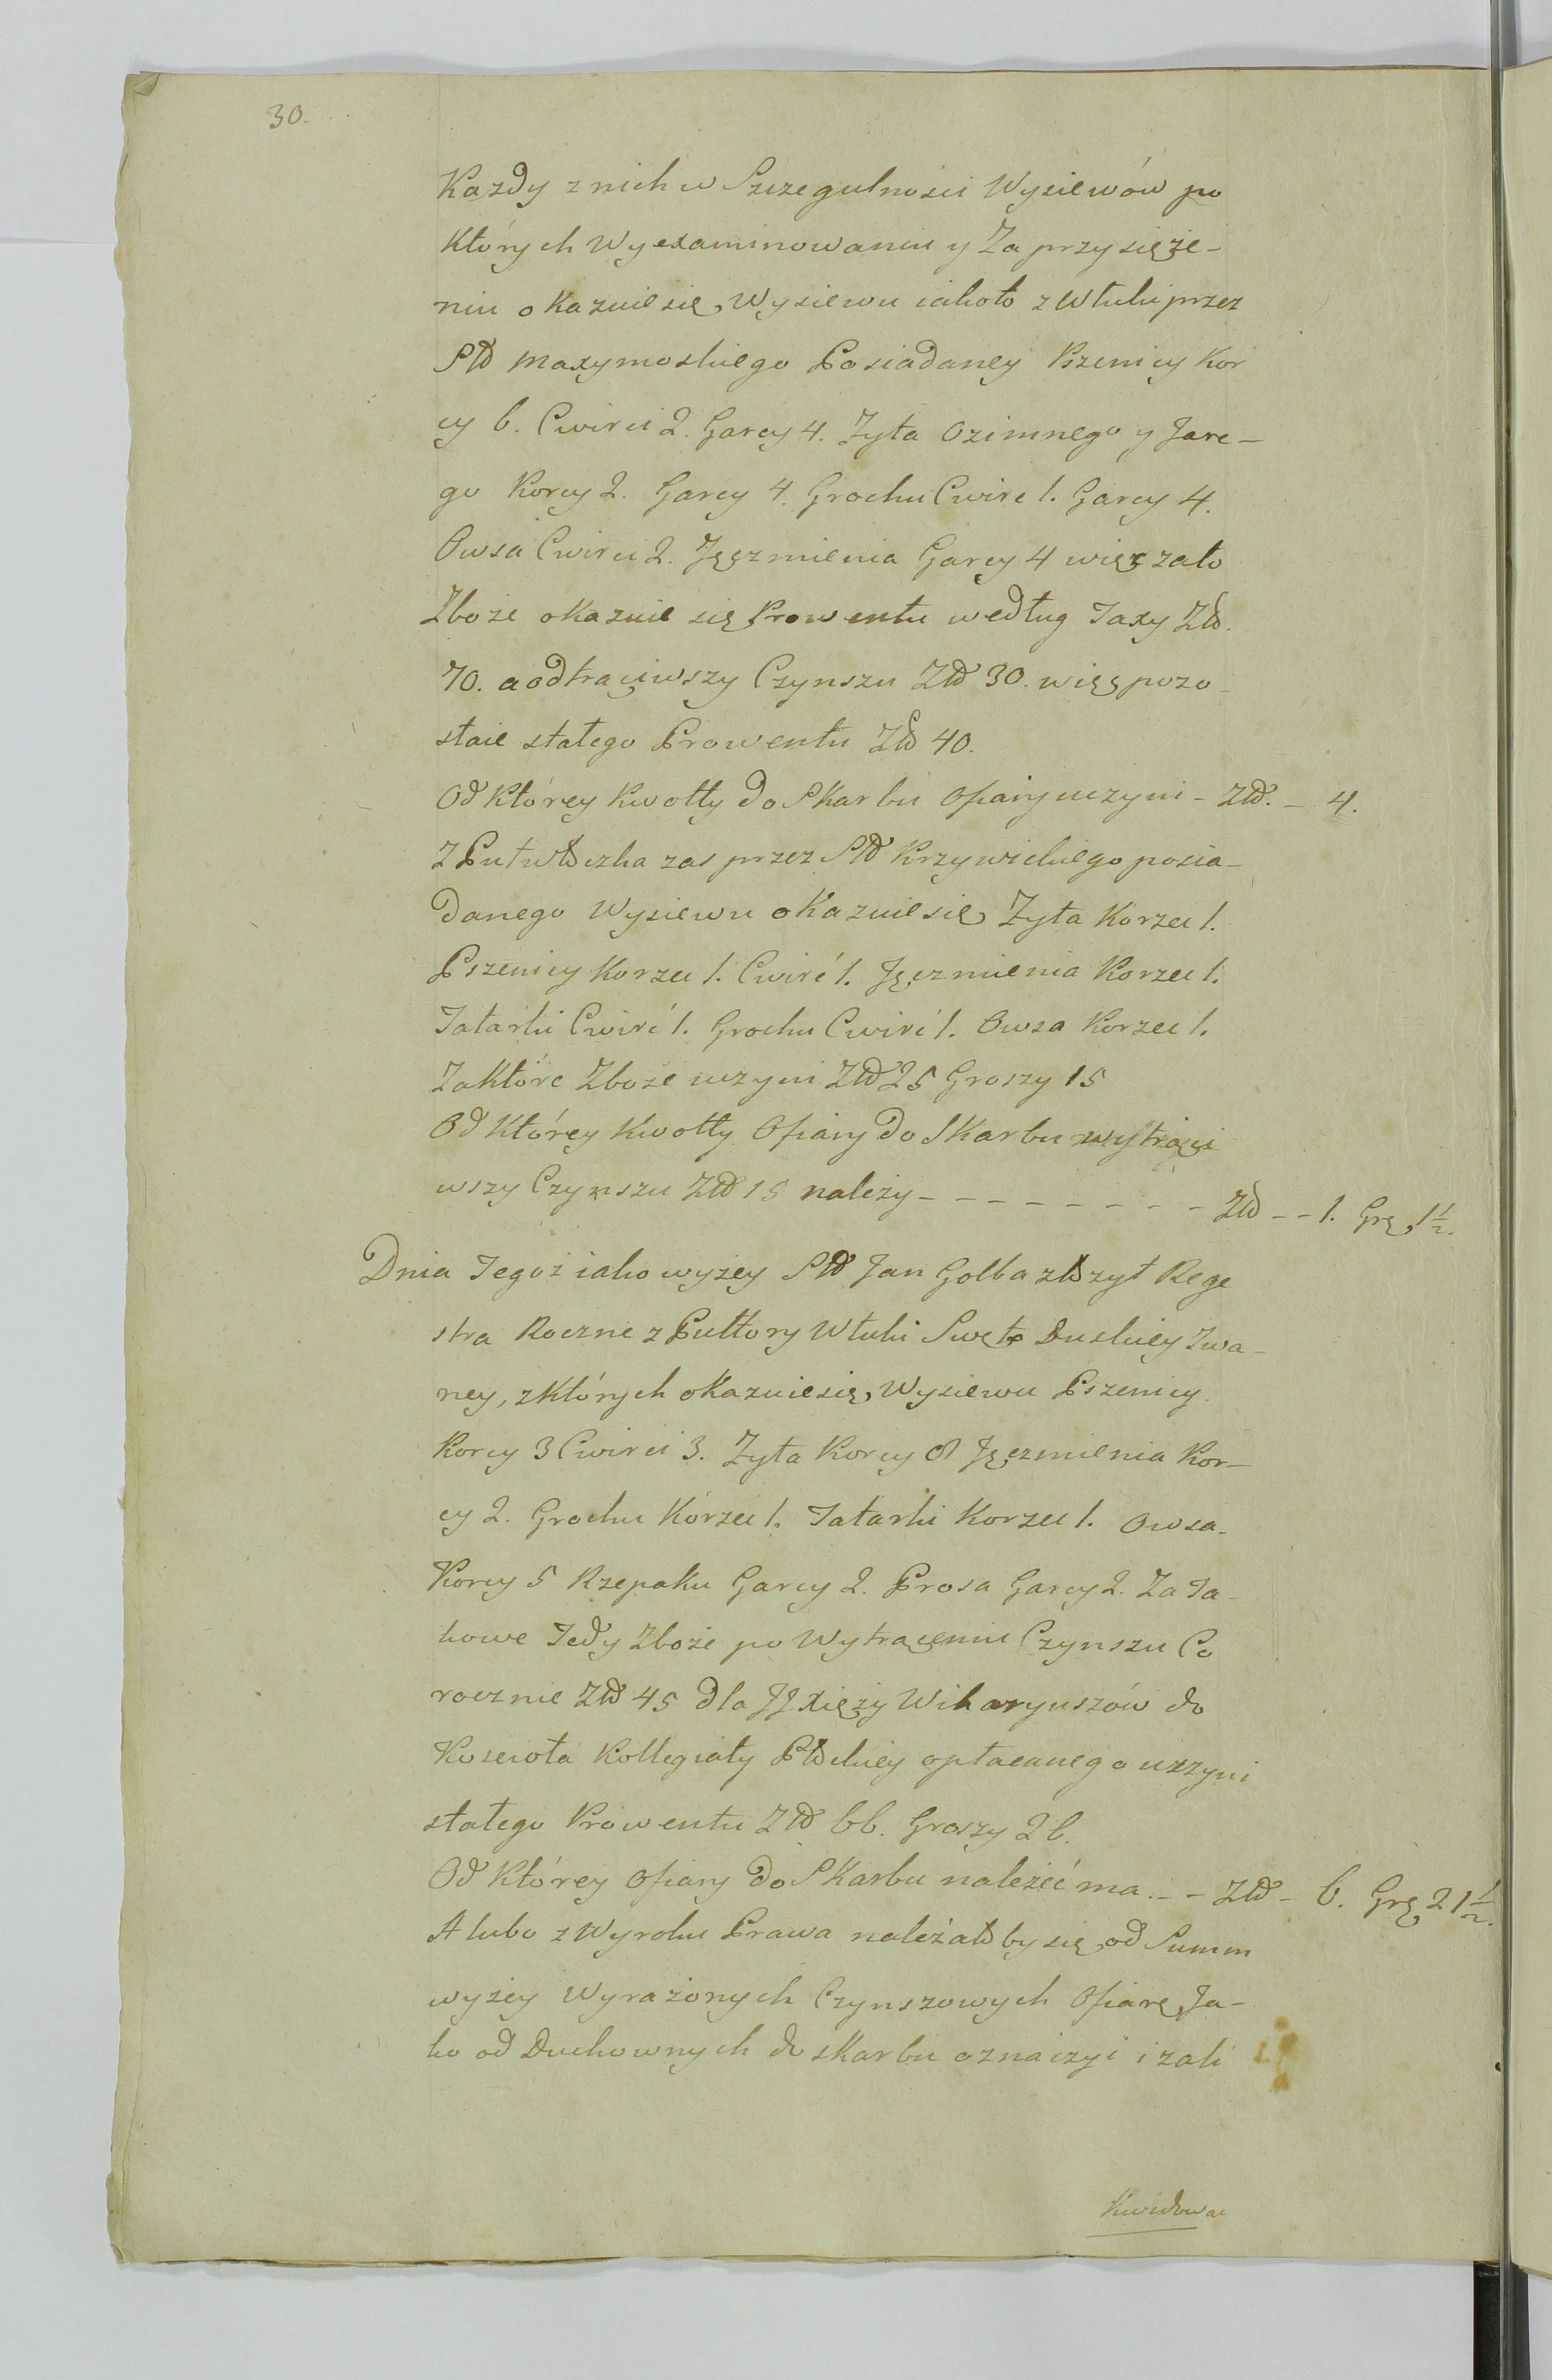 30.
Kazdy z nich w Szczegulności Wysiewów po
których Wyexaminowaniu y Zaprzysięże-
niu okazuie się Wysiewu iakoto z Włuki przez
Sł̃d Maxymoskiego Posiadaney Pszenicy Kor
cy 6. Cwirci 2. Garcy 4. Zyta Ozimnego y Jare-
go Korcy 2. Garcy 4. Grochu Cwirc 1. Garcy 4.
Owsa Cwirci 2. Jęczmienia Garcy 4 więc zato
Zboże okazuie się Prowentu według Taxy Złд.
70. a odtrąciwszy Czynszu Złd 30. więc pozo-
staie stałego Prowentu Złd 40.
Od którey kwotty do Skarbu Ofiary uczyni - Złd. - 4.
Z Puł zas przez Sł̃d Krzywickiego posia-
danego Wysiewu okazuie się Zyta Korzec 1.
Pszenicy Korzec 1. Cwirć 1. Jęczmienia Korzec 1.
Tatarki Cwirć 1. Grochu Cwirć 1. Owsa Korzec 1.
Za które Zboże uczyni Złd 25 Groszy 15
Od którey kwotty Ofiary do Skarbu wytrąci
wszy Czynszu Złd 15 należy - - - - - - - - - Złd - - 1. Grę 1½.
Dnia Tegoż iako wyżey Sł̃d Jan Golba złożył Rege
stra Roczne z Pułtory Włuki Swęto Duskiey Zwa-
ney, z których okazuie się Wysiewu Pszenicy
Korcy 3 Cwirci 3. Zyta Korcy 8 Jęczmienia Kor-
cy 2. Grochu Korzec 1. Tatarki Korzec 1. Owsa
Korcy 5 Rzepaku Garcy 2. Prosa Garcy 2. Za Ta-
kowe Tedy Zboże po Wytrąceniu Czynszu Co
rocznie Złd 45 dla JJ Xięży Wikaryuszów do
Kościoła Kollegiaty opłacanego uczyni
stałego Prowentu Złd 66. Groszy 26.
Od Którey Ofiary do Skarbu należeć ma - - Złd - 6. Grę 21½.
A lubo z Wyroku Prawa należałoby się od Summ
wyżey Wyrażonych Czynszowych Ofiarę Ja-
ko od Duchownych do Skarbu oznaczyć i zali
Kwidowac